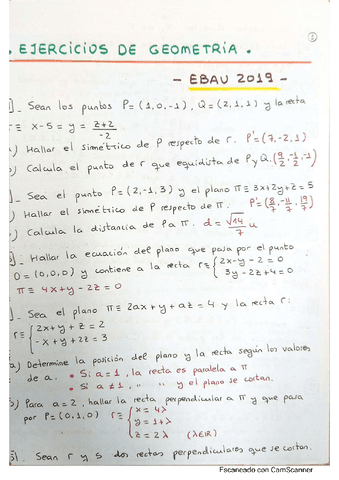 . EJERCICIOS DE GEOMETRÍA .
- EBAU 2019 -
]- Sean los puntos P=(1,0,-1), Q=(2,1,1) y la recta
r≡ x-5 = y = z+2/-2
) Hallar el simétrico de P respecto de r. P'=(7,-2,1)
) Calcula el punto de r que equidista de P y Q. (9/2, -1/2, -1)
]- Sea el punto P=(2,-1,3) y el plano π≡3x+2y+z=5
) Hallar el simétrico de P respecto de π. P'=(8/7, -11/7, 19/7)
) Calcula la distancia de P a π. d = √14/7 u
]- Hallar la ecuación del plano que pasa por el punto
O=(0,0,0) y contiene a la recta r≡ {2x-y-2=0
3y-2z+4=0
π≡ 4x+y-2z=0
]- Sea el plano π≡ 2ax+y+az=4 y la recta r:
r≡ {2x+y+z=2
-x+y+2z=3
a) Determine la posición del plano y la recta según los valores
de a. • Si a=1, la recta es paralela a π
• Si a≠1, " " y el plano se cortan.
b) Para a=2, hallar la recta perpendicular a π y que pasa
por P=(0,1,0) r≡ {x=4λ
y=1+λ
z=2λ (λ∈IR)
5)- Sean r y s dos rectas perpendiculares que se cortan.
Escaneado con CamScanner